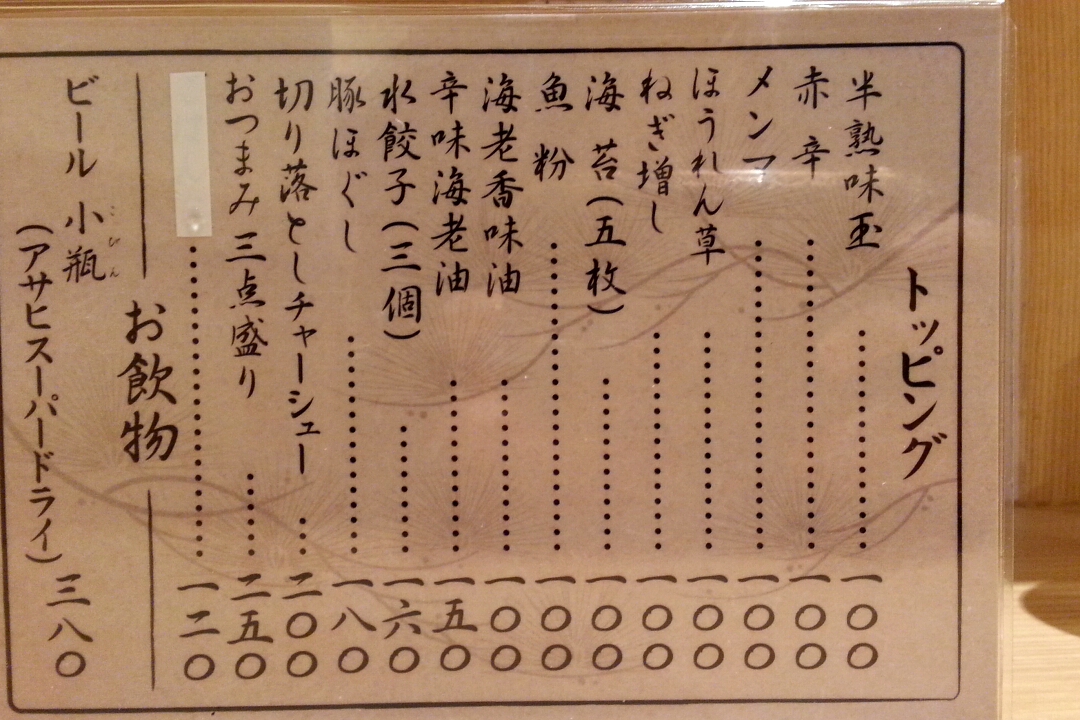 トッピング
半熟味玉 一〇〇
赤辛 一〇〇
メンマ 一〇〇
ほうれん草 一〇〇
ねぎ増し 一〇〇
海苔(五枚) 一〇〇
魚粉 一〇〇
海老香味油 一〇〇
辛味海老油 一五〇
水餃子(三個) 一六〇
豚ほぐし 一八〇
切り落としチャーシュー 二〇〇
おつまみ三点盛り 二五〇
一二〇
お飲物
ビール 小瓶 こびん
(アサヒスーパードライ) 三八〇